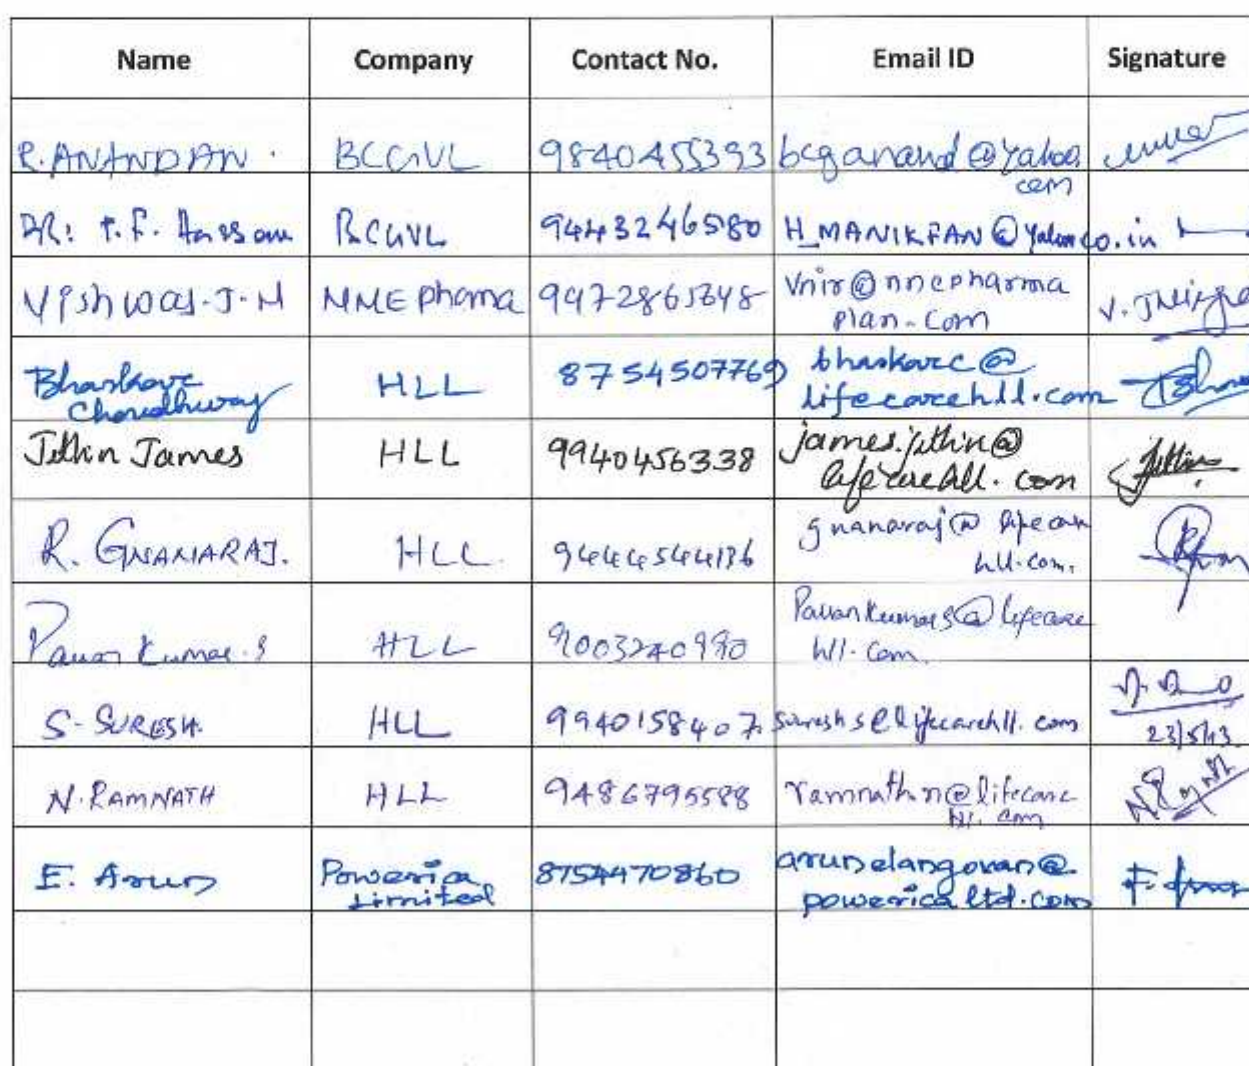 Name Company Contact No. Email ID Signature
R. ANANDAN. BCGVL 9840455393 bcganand@yahoo.
com
DR: P. F. Hassan BCGVL 9443246580 H_MANIKFAN@yahoo.co.in
Vishwas.J.M NNE Pharma 9972865648 vnir@nnepharma
plan.com
Bhaskar HLL 8754507769 bhaskarc@
Choudhury lifecarehll.com
Jithin James HLL 9940456338 james.jithin@
lifecarehll.com
R. GNANARAJ. HLL. 9444544136 gnanaraj@lifecare
hll.com.
Pavan Kumar.S HLL 9003240990 Pavankumars@lifecare
hll.com.
S. SURESH. HLL 9940158407 sureshs@lifecarehll.com
23/5/13
N. RAMNATH HLL 9486795588 ramnathn@lifecare
hll.com
E. Arun Powerica 8754470860 arunelangovan@
Limited powericaltd.com